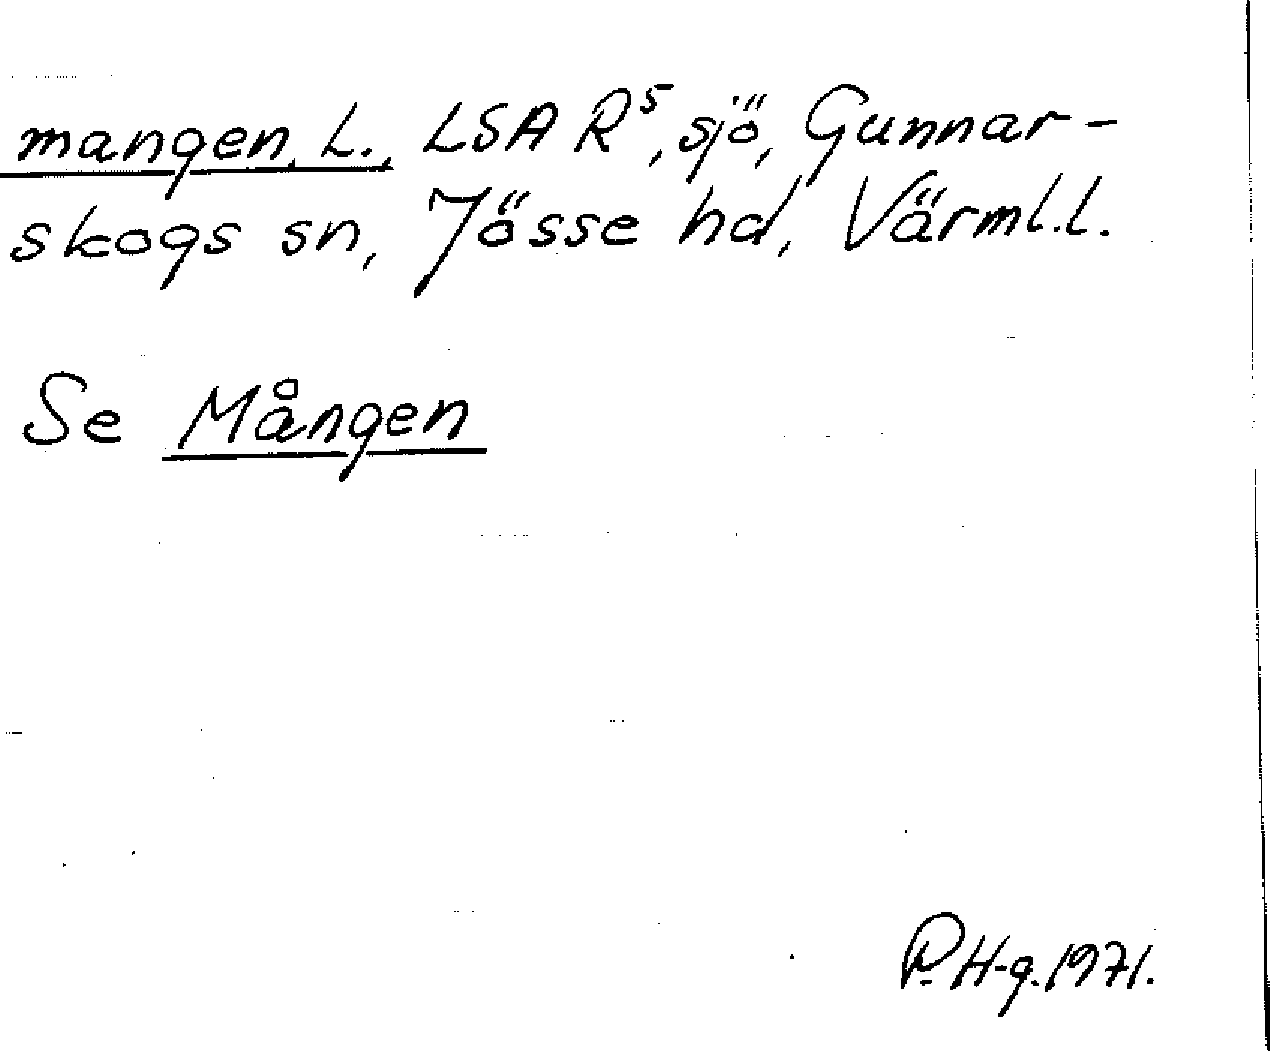 mangen, L., LSA R⁵, sjö, Gunnar-
skogs sn, Jösse hd, Värml.l.
Se Mången
P.H-g.1971.